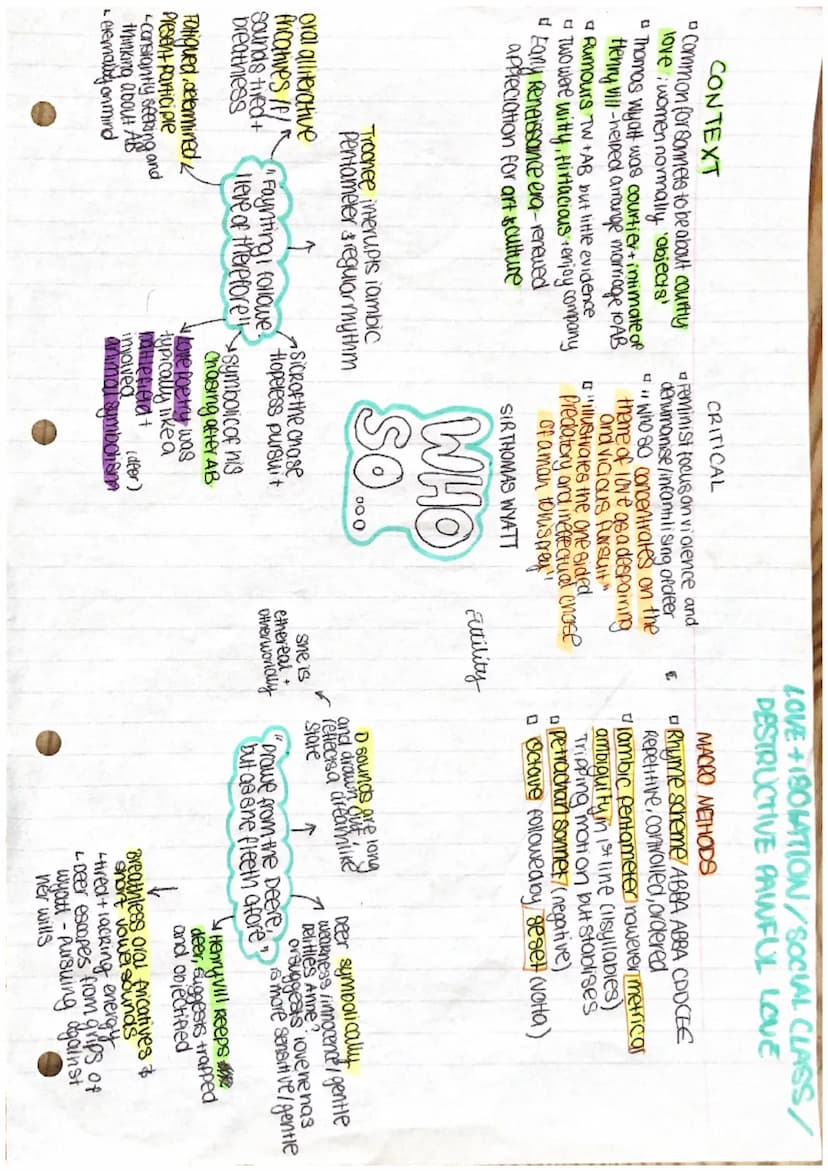 LOVE + ISOLATION / SOCIAL CLASS /
DESTRUCTIVE PAINFUL LOVE
CONTEXT
Common for sonnets to be about courtly
love; women normally 'objects'
Thomas Wyatt was courtier + intimate of
Henry VIII - helped arrange marriage to AB
Rumours TW + AB but little evidence
Two were witty, flirtacious, enjoy company
Early Reneissance era - renewed
appreciation for art & culture
CRITICAL
Feminist focus on violence and
dehumanise/infantilising of deer
"Who so concentrates on the
theme of love as a despairing
and vicious pursuit"
"illustrates the one sided
predatory and ineffectual chase
of a man to his prey"
MACRO METHODS
Rhyme scheme ABBA ABBA CDDCEE
Repetitive, controlled, ordered
Iambic pentameter however metrical
ambiguity in 1st line (11 syllables)
Tripping motion but stablises
Petrachan sonnet (negative)
Octave followed by seset (Volta)
SIR THOMAS WYATT
WHO
SO...
Futility
Trochee interupts iambic
pentameter & regular rhythm
oral alliterative
fricatives /f/
sounds tired +
breathless
"Faynting I followe.
I leve of therefore"
Fatigued, determined
Present participle
↳ constantly seeking and
thinking about AB
↳ eternally on mind
sick of the chase
+ hopeless pursuit
symbolic of his
chasing after AB
Love poetry was
typically like a
battlefield +
involved (deer)
animal symbolism
she is
ethereal +
otherworldly
D sounds are long
and drawn out,
reflects a dreamlike
state
"Drawe from the Deere,
but as she fleeth afore"
Deer symbolically
weakness/innocence/gentle
Belittles Anne?
or suggests love he has
is more sensitive/gentle
Henry VIII keeps
deer, suggests trapped
and objectified
Breathless oral fricatives &
short vowel sounds
↳ tired + lacking energy
↳ Deer escapes from grips of
Wyatt - pursuing against
her wills